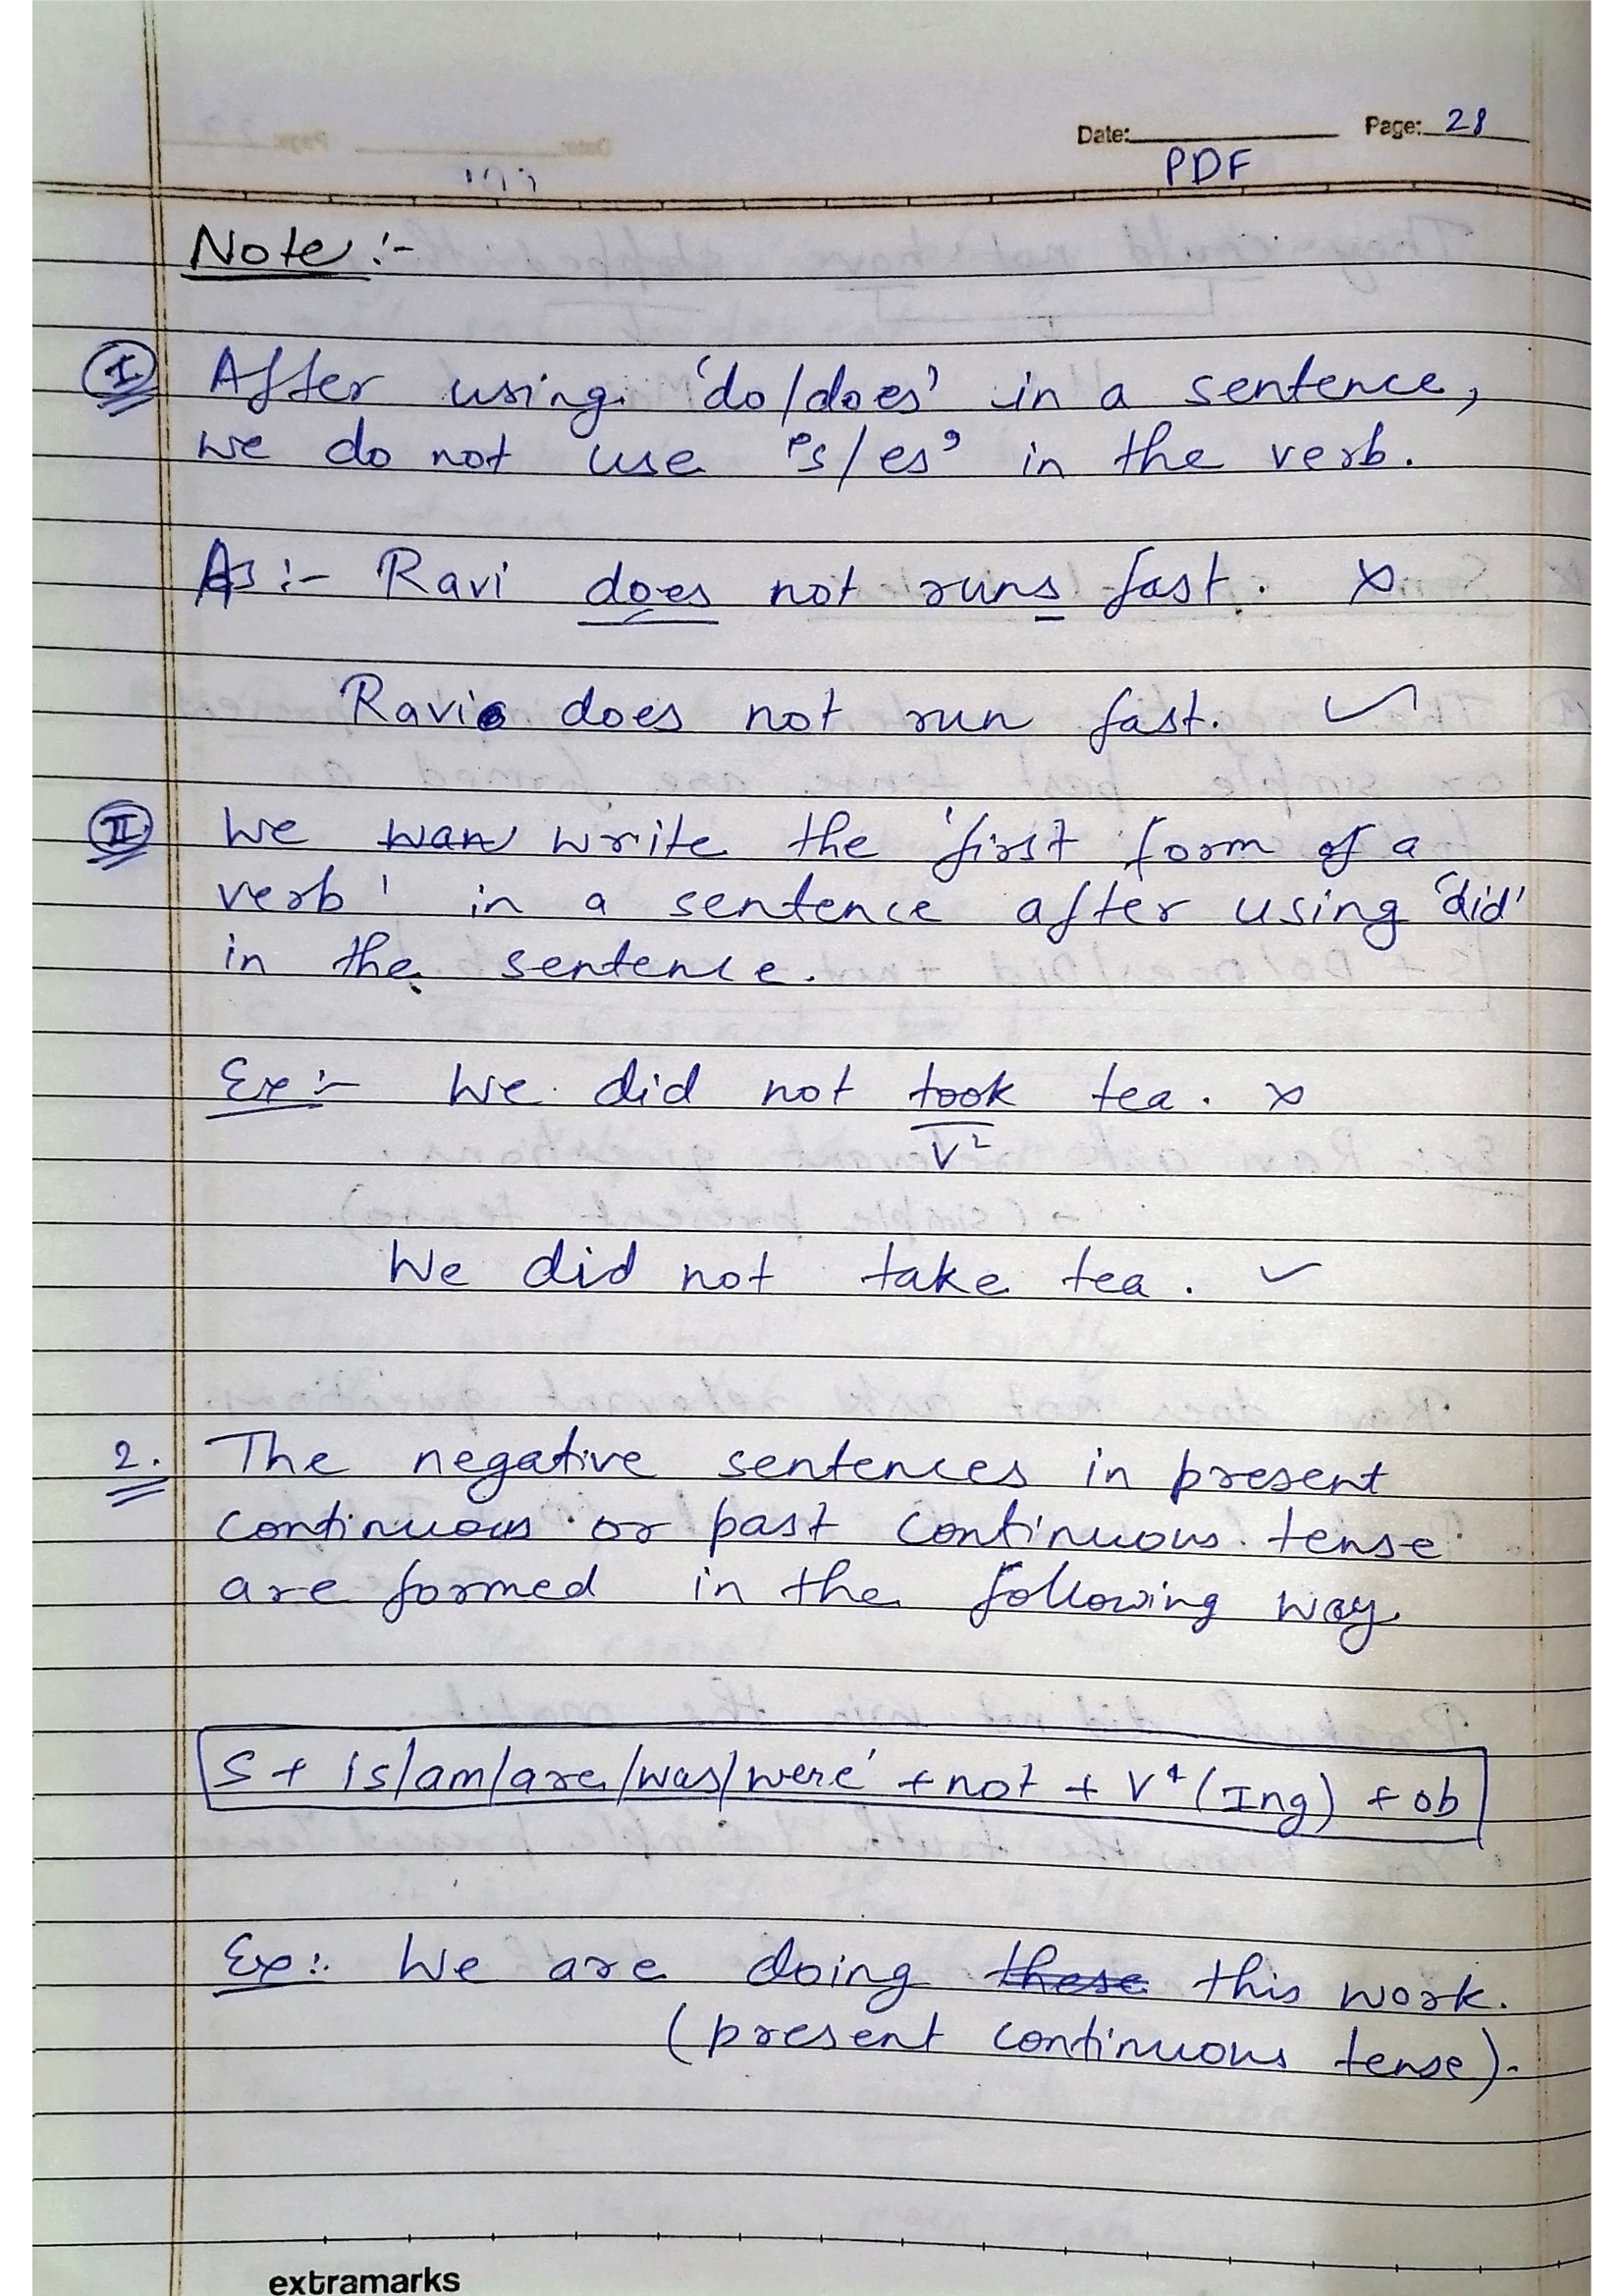 Date: Page: 28
PDF
Note :-
I After using 'do/does' in a sentence,
we do not use 's/es' in the verb.
As :- Ravi does not runs fast. ×
Ravi does not run fast. ✓
II We wan write the 'first form of a
verb' in a sentence after using 'did'
in the sentence.
Ex :- We did not took tea. ×
V²
We did not take tea. ✓
2. The negative sentences in present
continuous or past continuous tense
are formed in the following way.
S + is/am/are/was/were + not + V⁴ (Ing) + ob
Ex :. We are doing these this work.
(present continuous tense).
extramarks